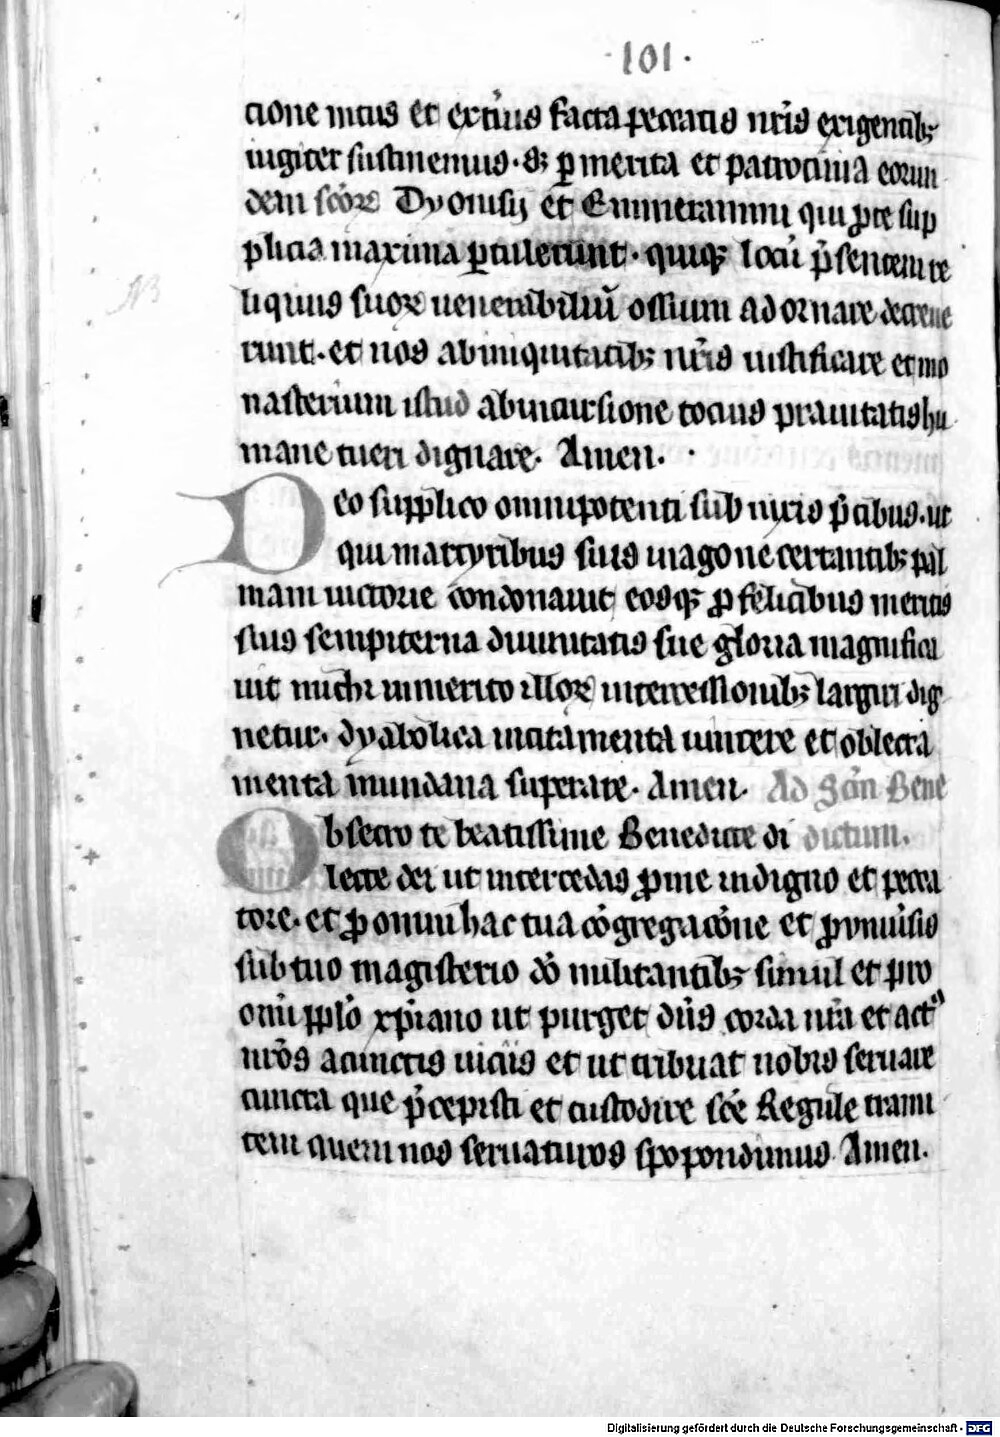 ·101·
cione intus et exti᷑us facta peccatis nr̄is exigentibꝫ
iugiter sustinemus· Sꝫ ꝑ merita et patrocinia eorun
dem sc̄oꝝ Dyonisij et Emmerammi qui ꝑ te sup
plicia maxima ꝑtulerunt· quiqꝫ locū p̄sentem re
liquiis suoꝝ uenerabiliū ossium adornare decreue
runt· et nos ab iniquitatibꝫ nr̄is iustificare et mo
nasterium istud ab incursione tocius prauitatis hu
mane tueri dignare· Amen·
Deo supplico omnipotenti sub nixis p̄cibus· ut
qui martyribus suis in agone certantibꝫ pal
mam uictorie condonauit eosqꝫ ꝓ felicibus meritis
suis sempiterna diuinitatis sue gloria magnifica
uit michi inmerito illoꝝ intercessionibꝫ largiri dig
netur· dyabolica incitamenta uincere et oblecta
menta mundana superare· Amen· Ad San̄ Bene
Obsecro te beatissime Benedicte di dictum.
lecte dei ut intercedas ꝓ me indigno et pecca
tore· et ꝓ omni hac tua cōgregacōne et ꝓ uniūsis
sub tuo magisterio dō militantibꝫ simul et pro
om̄i ppl̄o xp̄iano ut purget dn̄s corda nr̄a et actꝰ
nr̄os a cunctis uiciis et ut tribuat nobis seruare
cuncta que p̄cepisti et custodire sc̄e Regule trami
tem quem nos seruaturos spopondimus Amen.
Digitalisierung gefördert durch die Deutsche Forschungsgemeinschaft - DFG